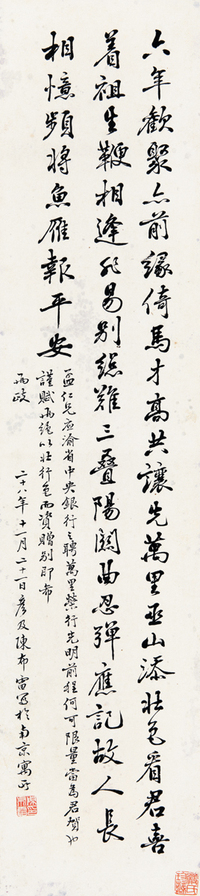 六年歡聚亦前緣倚馬才高共讓先萬里巫山添壯色看君喜
着祖生鞭相逢非易別總難三疊陽關曲忍彈應記故人長
相憶頻將魚雁報平安
孟仁兄應渝省中央銀行之聘萬里榮行先明前程何可限量當為君賀也
謹賦兩絕以壯行色而資贈別即希
兩政 二十八年十一月二十一日彥及陳布雷寫於南京寓所